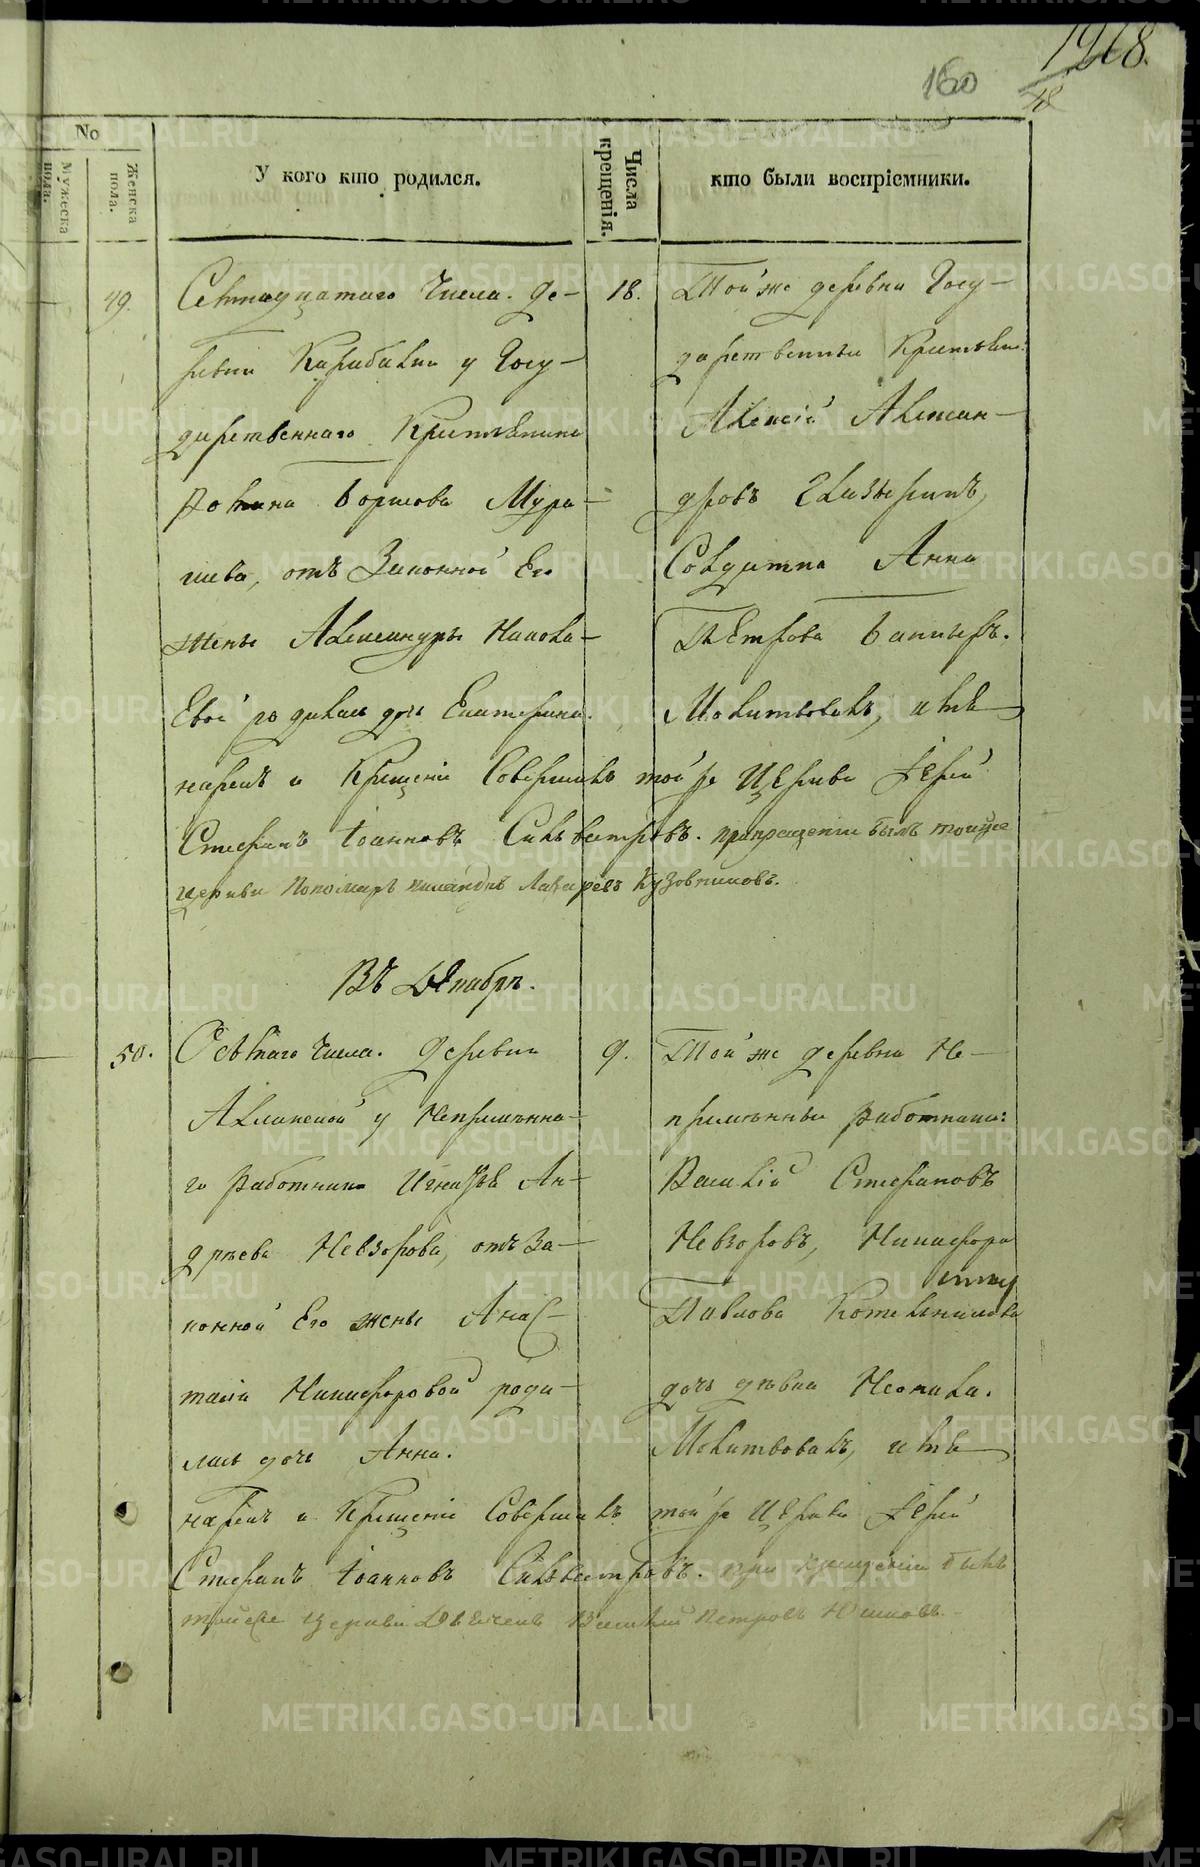 1918.
160
48
No
Мужеска пола.
Женска пола.
У кого кто родился.
Числа крещенія.
кто были воспріемники.
49.
Семнадцатаго Числа. Де-
ревни у Госу-
дарственнаго Крестьянина
Борисова Мура-
шева, отъ Законной Его
жены Александры
родилась дочь Екатерина.
18.
Той же деревни Госу-
дарственный Крестьян:
Алексѣй Алексан-
дровъ
Солдатка Анна
Петрова
Молитвовалъ, имя
нарекъ и Крещеніе Совершилъ той же Церкви Іерей
Стефанъ Іоанновъ Сильвестровъ. при крещеніи былъ тойже
церкви Пономарь Лазаревъ Кузовниковъ.
Въ Декабрѣ.
50.
Осьмаго Числа. Деревни
у Непремѣнна-
го Работника Игнатья Ан-
дреева Невзорова, отъ За-
конной Его жены Анас-
тасіи Никифоровой роди-
лась дочь Анна.
9.
Той же деревни Не-
премѣнный Работник:
Василій Стефановъ
Невзоровъ, Никифора
Павлова Котельникова
дочь дѣвка Неонила.
Молитвовалъ, имя
нарекъ и Крещеніе Совершилъ той же Церкви Іерей
Стефанъ Іоанновъ Сильвестровъ. при крещеніи былъ
тойже церкви Дьячекъ Василій Петровъ
METRIKI.GASO-URAL.RU